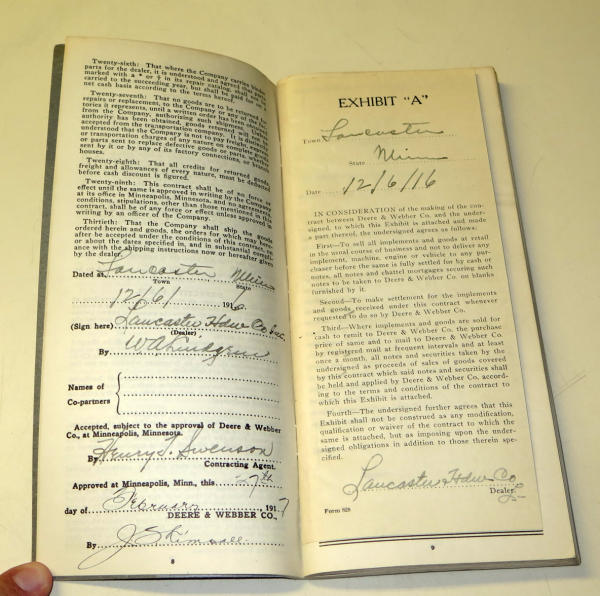 Twenty-sixth: That where the Company carries
parts for the dealer, it is understood and agreed that
marked with a * or † in its repair catalog
carried to the succeeding year, but shall be paid for on
net cash basis according to the terms
Twenty-seventh: That no goods are to be returned for
repairs or replacement, to the Company or any of the
tories it represents, until a written order has been received
from the Company, authorizing such shipment
authority has been obtained, goods returned will
accepted from the transportation company. It is
understood that the Company is not to pay freight
or transportation charges of any nature on complete goods
or parts sent to replace defective goods or parts, whether
sent by it or by any of its factory connections, or
houses.
Twenty-eighth: That all credits for returned goods,
freight and allowances of every nature, must be deducted
before cash discount is figured.
Twenty-ninth: This contract shall be of no force or
effect until the same is approved in writing by the Company
at its office in Minneapolis, Minnesota, and no agreements,
conditions, stipulations, other than those mentioned in this
contract, shall be of any force or effect unless approved in
writing by an officer of the Company.
Thirtieth: That the Company shall ship the goods
ordered herein and goods, the orders for which may here-
after be accepted under the conditions of this contract, on
or about the dates specified in, and in substantial compli-
ance with the shipping instructions now or hereafter given
by the dealer.
Dated at Lancaster Minn
Town State
12/6/ 1916
(Sign here) Lancaster Hdw Co Inc.
(Dealer)
By
Names of
Co-partners
Accepted, subject to the approval of Deere & Webber
Co., at Minneapolis, Minnesota.
By Henry S. Swenson
Contracting Agent.
Approved at Minneapolis, Minn., this 27th
day of February 1917
DEERE & WEBBER CO.,
By
8
EXHIBIT "A"
Town Lancaster
State Minn
Date 12/6/16
IN CONSIDERATION of the making of the con-
tract between Deere & Webber Co. and the under-
signed, to which this Exhibit is attached and made
a part thereof, the undersigned agrees as follows.
First—To sell all implements and goods at retail
in the usual course of business and not to deliver any
implement, machine, engine or vehicle to any pur-
chaser before the same is fully settled for by cash or
notes, all notes and chattel mortgages securing such
notes to be taken to Deere & Webber Co. on blanks
furnished by it.
Second—To make settlement for the implements
and goods received under this contract whenever
requested to do so by Deere & Webber Co.
Third—Where implements and goods are sold for
cash to remit to Deere & Webber Co. the purchase
price of same and to mail to Deere & Webber Co.
by registered mail at frequent intervals and at least
once a month, all notes and securities taken by the
undersigned as proceeds of sales of goods covered
by this contract which said notes and securities shall
be held and applied by Deere & Webber Co., accord-
ing to the terms and conditions of the contract to
which this Exhibit is attached.
Fourth—The undersigned further agrees that this
Exhibit shall not be construed as any modification,
qualification or waiver of the contract to which the
same is attached, but as imposing upon the under-
signed obligations in addition to those therein spe-
cified.
Lancaster Hdw Co
Dealer.
Form 928
9